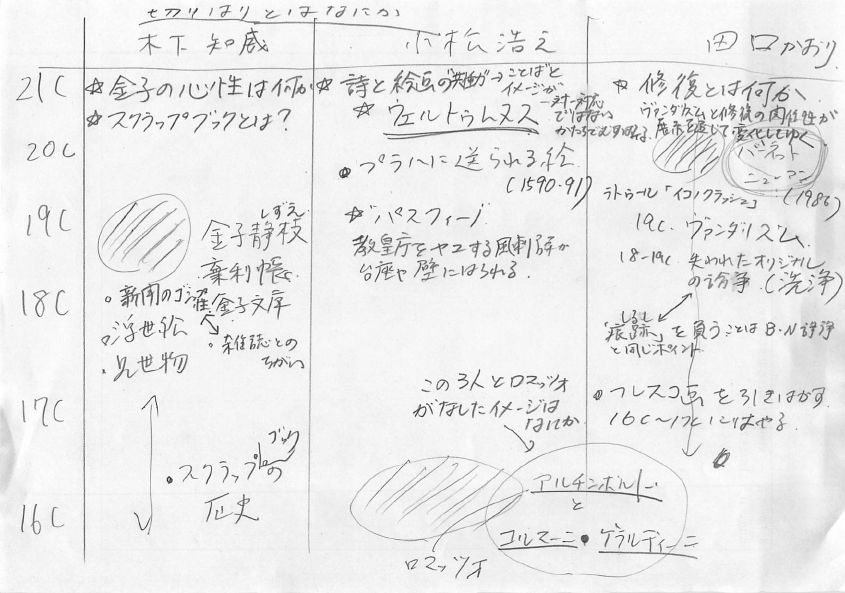 切りはりとはなにか
木下知威
小松浩之
田口かおり
21C
☆金子の心性は何か
☆スクラップブックとは?
☆詩と絵画の→ことばと
イメージが
一対一対応
ではない
☆ウェルトゥムヌス
☆修復とは何か
ヴァンダリズムと修復の関係性が
展示を通じて変化してゆく
20C
・プラハに送られる絵
(1590-91)
バーネット
ニューマン
ラトゥール「イコノクラッシュ」
(1986)
19C
しずえ
金子静枝
棄利帳
☆パスクィーノ
教皇庁をヤユする風刺詩が
台座や壁にはられる
19C ヴァンダリズム
18-19C 失われたオリジナル
の論争(洗浄)
18C
・新聞の
金子文庫
・浮世絵
・見世物
・雑誌との
ちがい
しるし
「痕跡」を負うことはB・N
と同じポイント
17C
この3人とロマッツォ
がなしたイメージは
なにか
・フレスコ画を引きはがす
16C〜17Cにはやる
・スクラップブックの
歴史
16C
アルチンボルド
と
コルマーニ・ゲラルディーニ
ロマッツォ